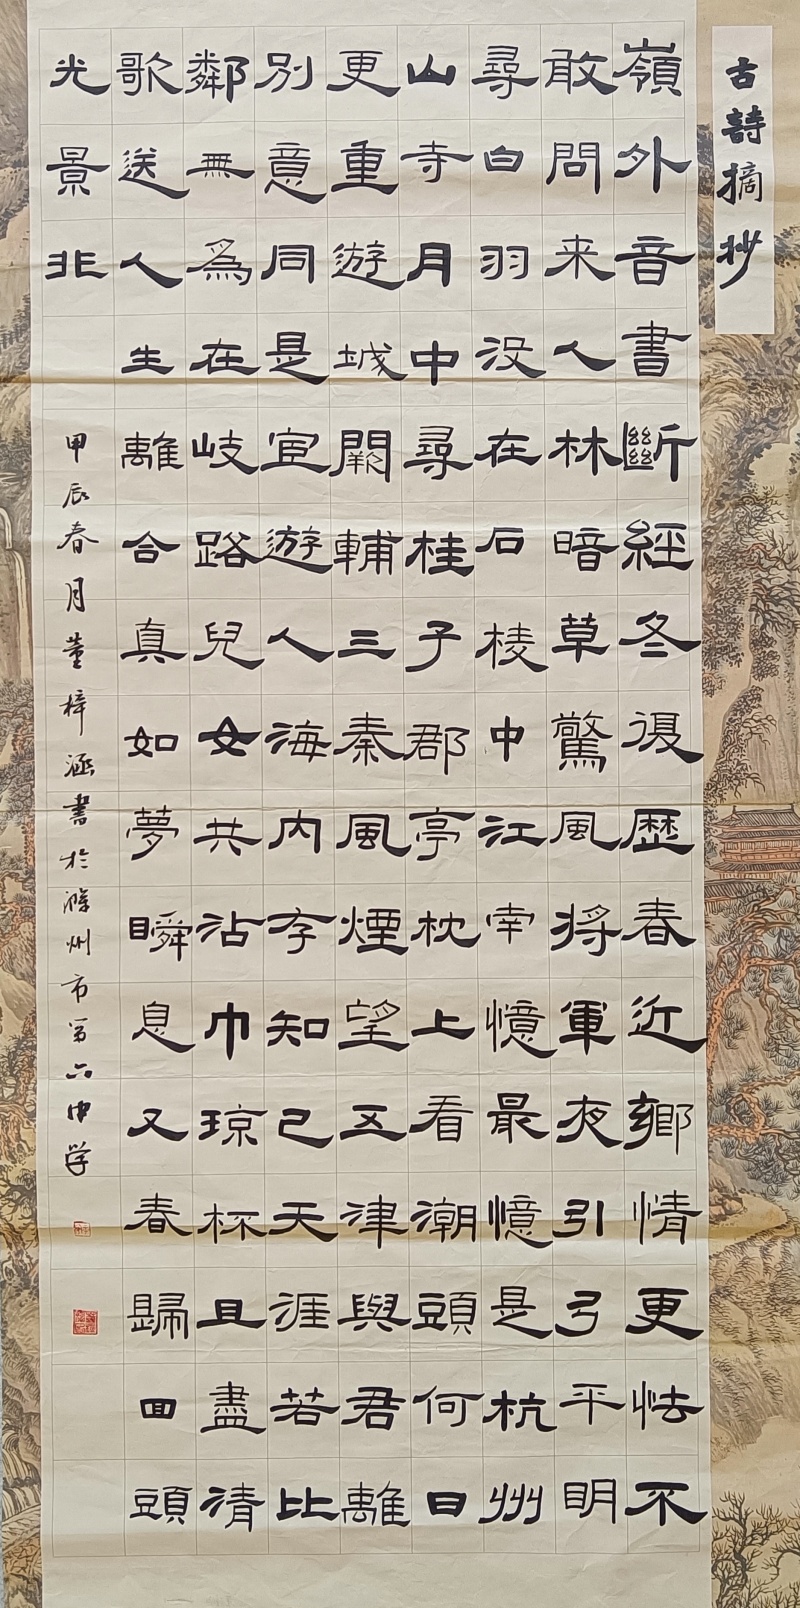 古詩摘抄
嶺外音書斷經冬復歷春近鄉情更怯不
敢問来人林暗草驚風將軍夜引弓平明
尋白羽没在石棱中江南憶最憶是杭州
山寺月中尋桂子郡亭枕上看潮頭何日
更重遊城闕輔三秦風煙望五津與君離
別意同是宦遊人海內存知己天涯若比
鄰無為在岐路兒女共沾巾琼杯且盡清
歌送人生離合真如夢瞬息又春歸回頭
光景非
甲辰春月董梓涵書於滁州市第六中学